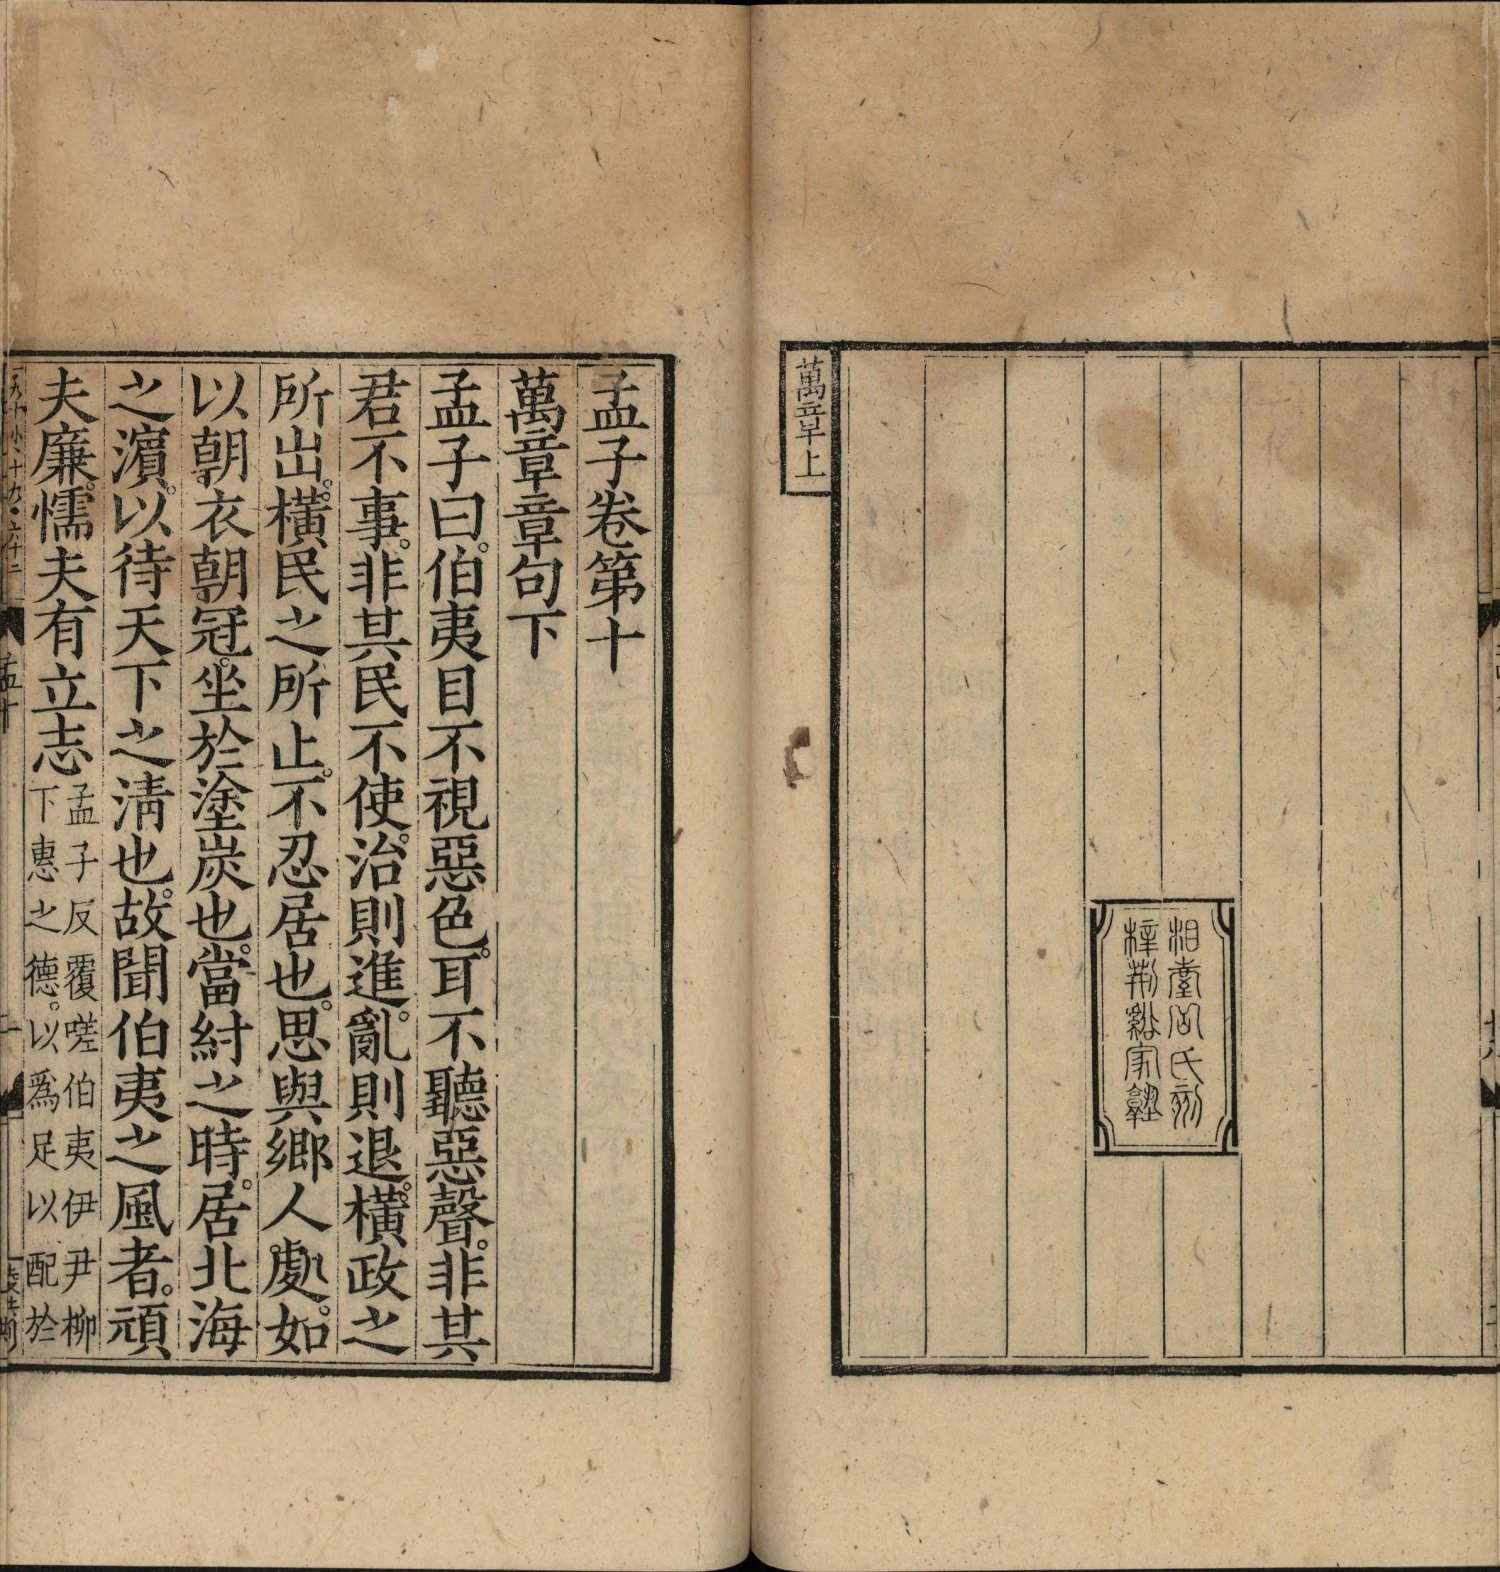 萬章上
相臺岳氏刻
梓荆谿家塾
孟子卷第十
萬章章句下
孟子曰。伯夷目不視惡色。耳不聽惡聲。非其
君不事。非其民不使。治則進。亂則退。橫政之
所出。橫民之所止。不忍居也。思與鄉人處。如
以朝衣朝冠。坐於塗炭也。當紂之時。居北海
之濵。以待天下之淸也。故聞伯夷之風者。頑
夫廉。懦夫有立志
孟子反覆嗟伯夷伊尹柳
下惠之德。以爲足以配於
孟十
一